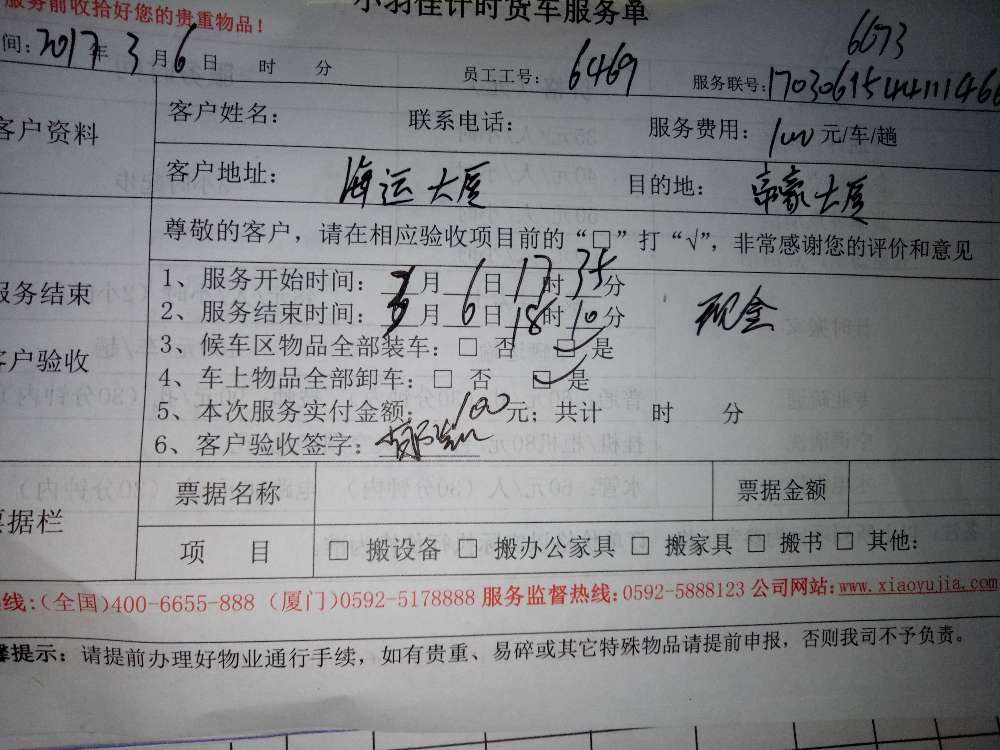 服务前收拾好您的贵重物品！
小羽佳计时货车服务单
6673
间: 2017年 3月 6日 时 分 员工工号: 6469 服务联号:
客户资料
客户姓名: 联系电话: 服务费用: 100元/车/趟
客户地址: 海运大厦 目的地: 帝豪大厦
尊敬的客户，请在相应验收项目前的“□”打“√”，非常感谢您的评价和意见
服务结束
客户验收
1、服务开始时间: 3月 6日 17时 35分
2、服务结束时间: 3月 6日 18时 10分 现金
3、候车区物品全部装车: □ 否 □ 是
4、车上物品全部卸车: □ 否 □ 是
5、本次服务实付金额: 100元; 共计 时 分
6、客户验收签字:
票据栏
票据名称 票据金额
项 目 □ 搬设备 □ 搬办公家具 □ 搬家具 □ 搬书 □ 其他:
线:(全国)400-6655-888 (厦门)0592-5178888 服务监督热线:0592-5888123 公司网站:www.xiaoyujia.com
馨提示: 请提前办理好物业通行手续，如有贵重、易碎或其它特殊物品请提前申报，否则我司不予负责。